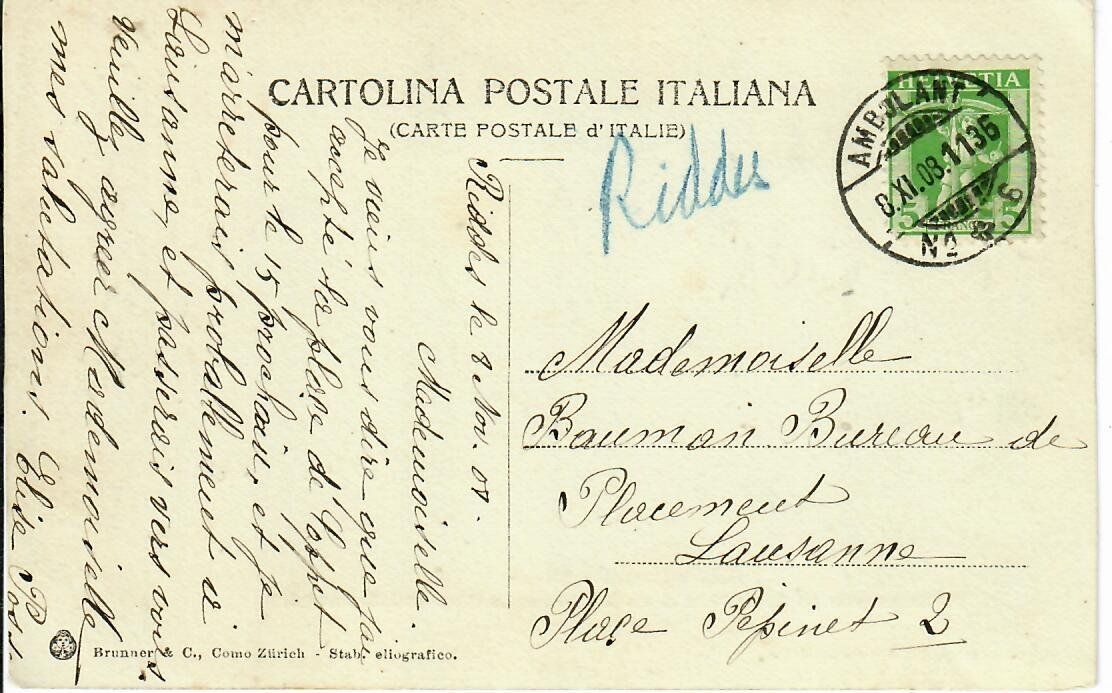 CARTOLINA POSTALE ITALIANA
(CARTE POSTALE d'ITALIE)
HELVETIA
5 5
AMBULANT
8.XI.08.11 35
Nº 2
Riddes
Riddes le 8 Nov. 08.
Mademoiselle.
Je viens vous dire que j'ai
accepté la place de
pour le 15 prochain, et je
m'arreterais probablement à
Lausanne, et passerais vers vous
Veuillez agreer Mesdemoiselle
mes salutations. Elise
Mademoiselle
Bauman Bureau de
Placement
Lausanne
Place Pepinet 2
Brunner & C., Como Zürich - Stab. eliografico.